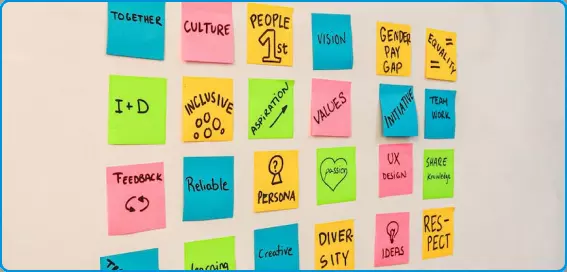 TOGETHER
CULTURE
PEOPLE
1st
VISION
GENDER
PAY
GAP
EQUALITY
I+D
INCLUSIVE
ASPIRATION
VALUES
INITIATIVE
TEAM
WORK
FEEDBACK
Reliable
?
PERSONA
passion
UX
DESIGN
SHARE
Knowledge
learning
Creative
DIVER-
SITY
IDEAS
RES-
PECT